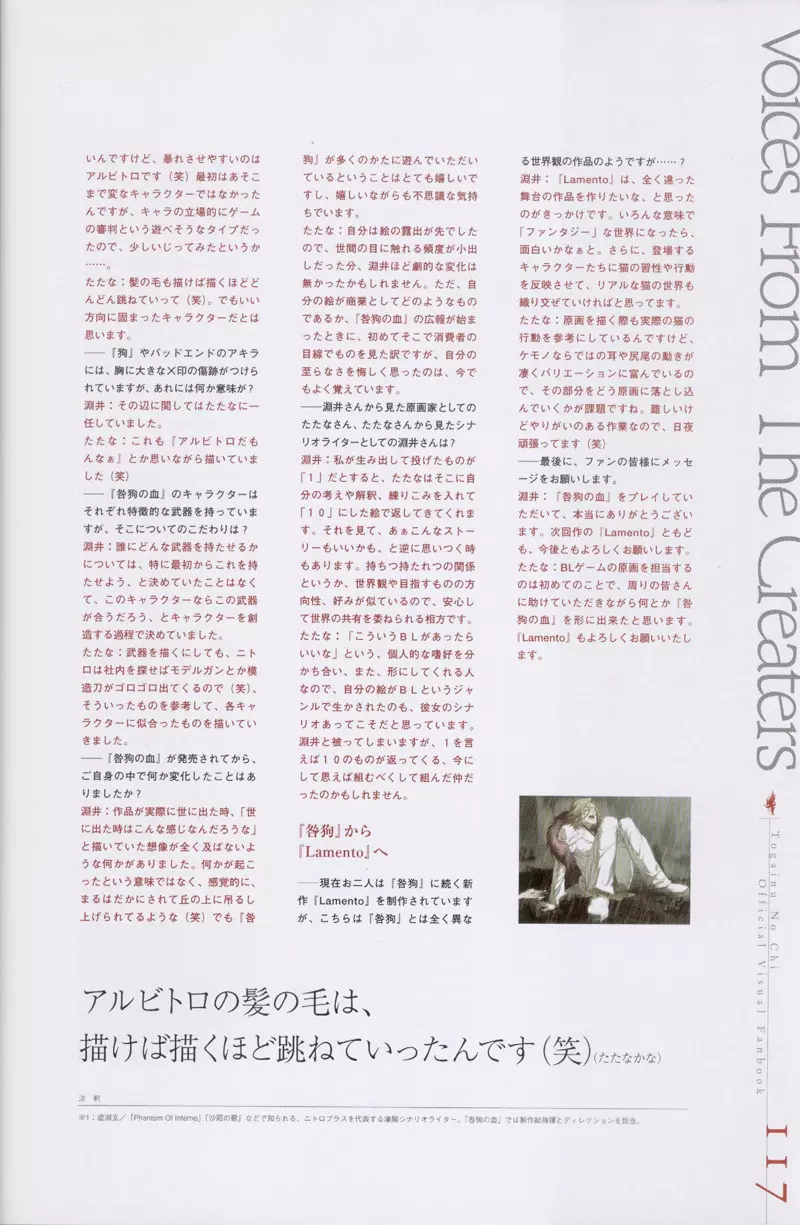 いんですけど、暴れさせやすいのは
アルビトロです（笑）最初はあそこ
まで変なキャラクターではなかった
んですが、キャラの立場的にゲーム
の審判という遊べそうなタイプだっ
たので、少しいじってみたというか
……。
たたな：髪の毛も描けば描くほどど
んどん跳ねていって（笑）。でもいい
方向に固まったキャラクターだとは
思います。
――『狗』やバッドエンドのアキラ
には、胸に大きな×印の傷跡がつけら
れていますが、あれには何か意味が？
淵井：その辺に関してはたたなに一
任していました。
たたな：これも『アルビトロだも
んなぁ』とか思いながら描いていま
した（笑）
――『咎狗の血』のキャラクターは
それぞれ特徴的な武器を持っていま
すが、そこについてのこだわりは？
淵井：誰にどんな武器を持たせるか
については、特に最初からこれを持
たせよう、と決めていたことはなく
て、このキャラクターならこの武器
が合うだろう、とキャラクターを創
造する過程で決めていました。
たたな：武器を描くにしても、ニト
ロは社内を探せばモデルガンとか模
造刀がゴロゴロ出てくるので（笑）、
そういったものを参考して、各キャ
ラクターに似合ったものを描いてい
きました。
――『咎狗の血』が発売されてから、
ご自身の中で何か変化したことはあ
りましたか？
淵井：作品が実際に世に出た時、「世
に出た時はこんな感じなんだろうな」
と描いていた想像が全く及ばないよ
うな何かがありました。何かが起こ
ったという意味ではなく、感覚的に、
まるはだかにされて丘の上に吊るし
上げられてるような（笑）でも『咎
狗』が多くのかたに遊んでいただい
ているということはとても嬉しいで
すし、嬉しいながらも不思議な気持
ちでいます。
たたな：自分は絵の露出が先でした
ので、世間の目に触れる頻度が小出
しだった分、淵井ほど劇的な変化は
無かったかもしれません。ただ、自
分の絵が商業としてどのようなもの
であるか、『咎狗の血』の広報が始ま
ったときに、初めてそこで消費者の
目線でものを見た訳ですが、自分の
至らなさを悔しく思ったのは、今で
もよく覚えています。
――淵井さんから見た原画家としての
たたなさん、たたなさんから見たシナ
リオライターとしての淵井さんは？
淵井：私が生み出して投げたものが
「１」だとすると、たたなはそこに自
分の考えや解釈、練りこみを入れて
「１０」にした絵で返してきてくれま
す。それを見て、あぁこんなストー
リーもいいかも、と逆に思いつく時
もあります。持ちつ持たれつの関係
というか、世界観や目指すものの方
向性、好みが似ているので、安心し
て世界の共有を委ねられる相方です。
たたな：「こういうＢＬがあったら
いいな」という、個人的な嗜好を分
かち合い、また、形にしてくれる人
なので、自分の絵がＢＬというジャ
ンルで生かされたのも、彼女のシナ
リオあってこそだと思っています。
淵井と被ってしまいますが、１を言
えば１０のものが返ってくる、今に
して思えば組むべくして組んだ仲だ
ったのかもしれません。
『咎狗』から
『Lamento』へ
――現在お二人は『咎狗』に続く新
作『Lamento』を制作されています
が、こちらは『咎狗』とは全く異な
る世界観の作品のようですが……？
淵井：『Lamento』は、全く違った
舞台の作品を作りたいな、と思った
のがきっかけです。いろんな意味で
「ファンタジー」な世界になったら、
面白いかなぁと。さらに、登場する
キャラクターたちに猫の習性や行動
を反映させて、リアルな猫の世界も
織り交ぜていければと思ってます。
たたな：原画を描く際も実際の猫の
行動を参考にしているんですけど、
ケモノならではの耳や尻尾の動きが
凄くバリエーションに富んでいるの
で、その部分をどう原画に落とし込
んでいくかが課題ですね。難しいけ
どやりがいのある作業なので、日夜
頑張ってます（笑）
――最後に、ファンの皆様にメッセ
ージをお願いします。
淵井：『咎狗の血』をプレイしてい
ただいて、本当にありがとうござい
ます。次回作の『Lamento』ともど
も、今後ともよろしくお願いします。
たたな：BLゲームの原画を担当する
のは初めてのことで、周りの皆さん
に助けていただきながら何とか『咎
狗の血』を形に出来たと思います。
『Lamento』もよろしくお願いいたし
ます。
アルビトロの髪の毛は、
描けば描くほど跳ねていったんです（笑）（たたなかな）
注 釈
※1：虚淵玄／『Phantom Of Inferno』『沙耶の歌』などで知られる、ニトロプラスを代表する凄腕シナリオライター。『咎狗の血』では制作総指揮とディレクションを担当。
Voices From The Creaters
Togainu No Chi
Official Visual Fanbook
117